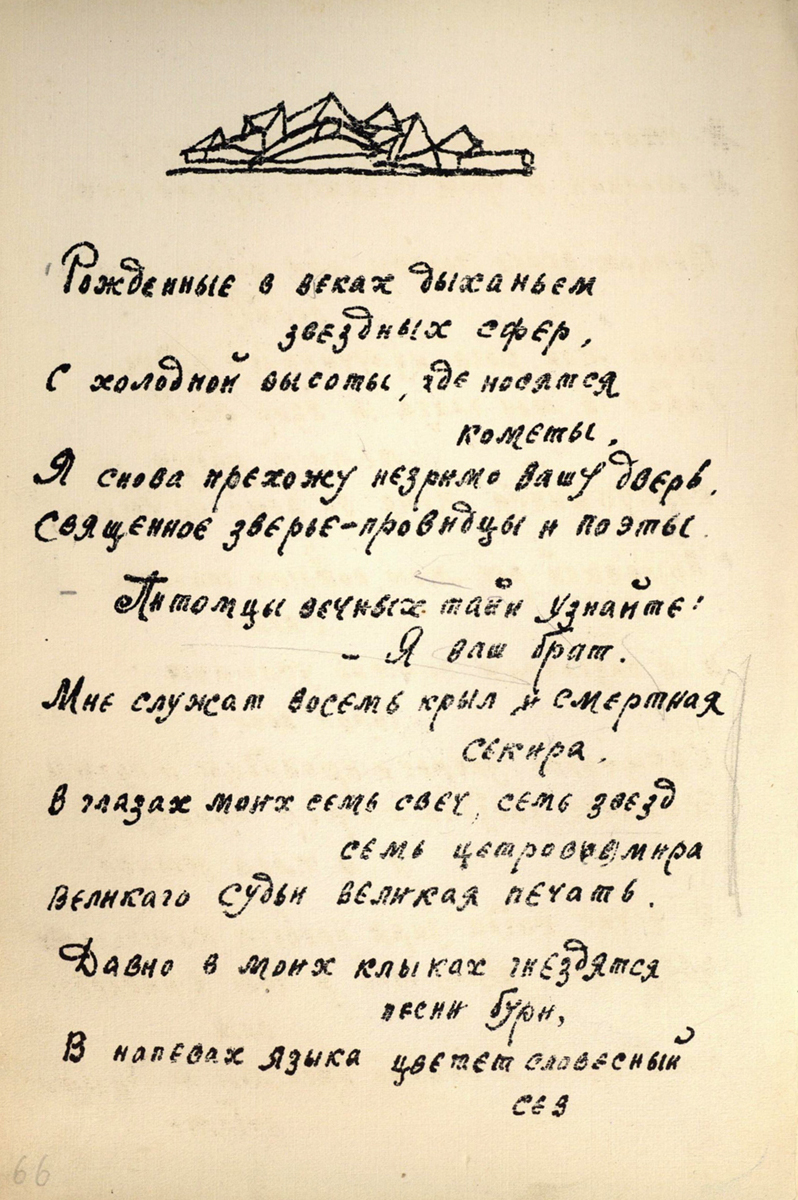 Рожденные в веках дыханьем
звездных сфер,
С холодной высоты, где носятся
кометы,
Я снова прехожу незримо вашу дверь,
Священное зверье-провидцы и поэты.
Питомцы вечных тайн узнайте!
– Я ваш брат.
Мне служат восемь крыл и смертная
секира.
В глазах моих семь свеч, семь звезд
семь
Великаго судьи великая печать.
Давно в моих клыках гнездятся
песни бури,
В напевах языка цветет словесный
сев
66